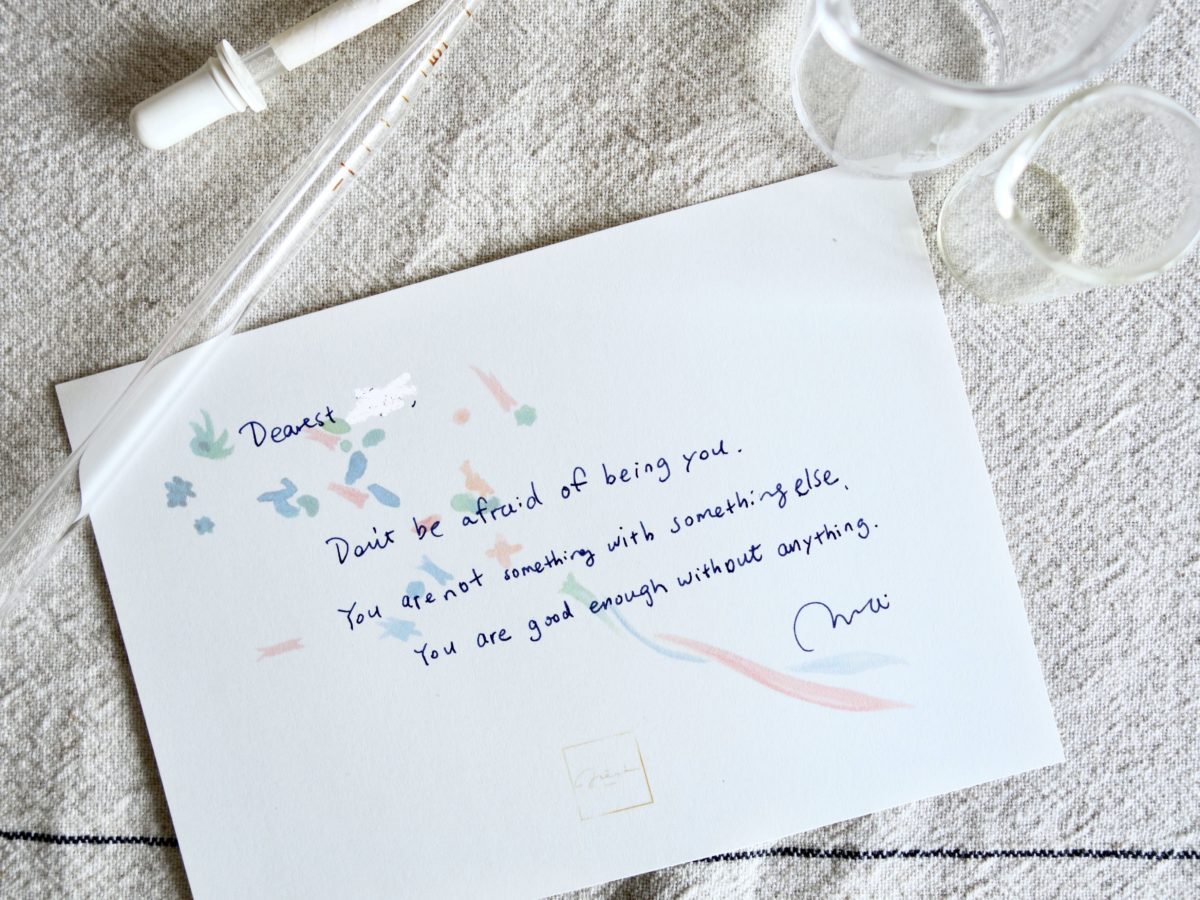 Dearest ,
Don't be afraid of being you.
You are not something with something else.
You are good enough without anything.